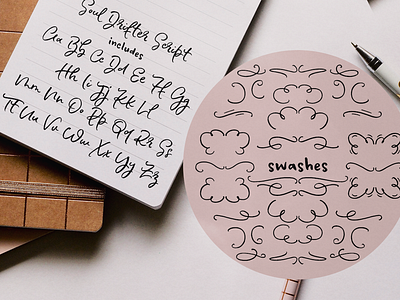 Soul Drifter Script
includes
Aa Bb Cc Dd Ee Ff Gg
Hh Ii Jj Kk Ll
Mm Nn Oo Pp Qq Rr Ss
Tt Uu Vv Ww Xx Yy Zz
swashes